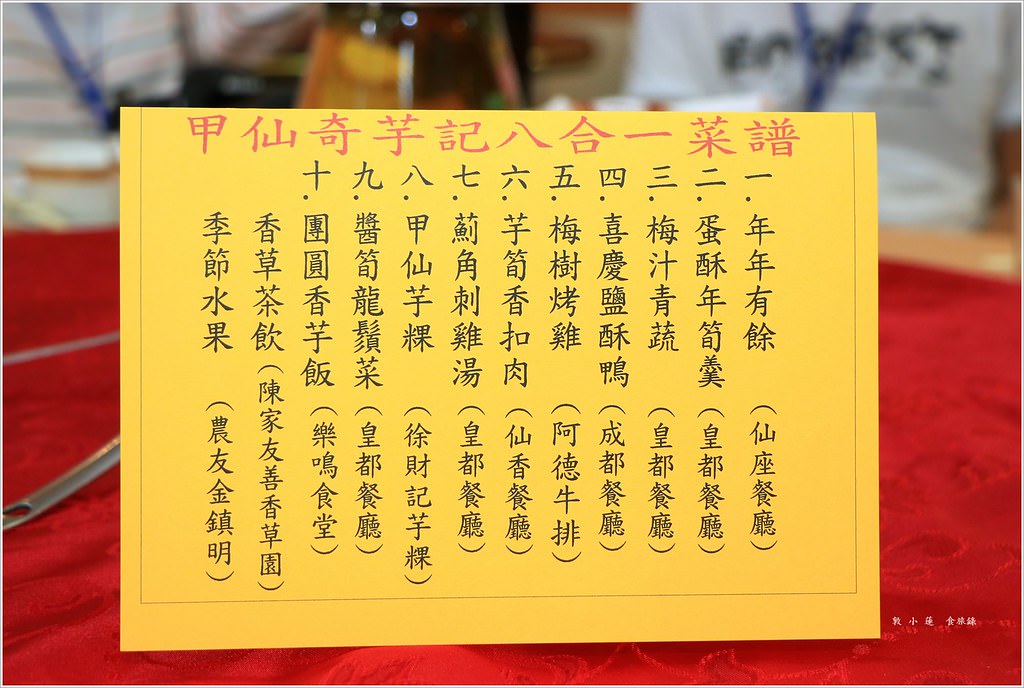 甲仙奇芋記八合一菜譜
一.年年有餘（仙座餐廳）
二.蛋酥年筍羹（皇都餐廳）
三.梅汁青蔬（皇都餐廳）
四.喜慶鹽酥鴨（成都餐廳）
五.梅樹烤雞（阿德牛排）
六.芋筍香扣肉（仙香餐廳）
七.薊角刺雞湯（皇都餐廳）
八.甲仙芋粿（徐財記芋粿）
九.醬筍龍鬚菜（皇都餐廳）
十.團圓香芋飯（樂鳴食堂）
香草茶飲（陳家友善香草園）
季節水果（農友金鎮明）
敦小蓮 食旅錄